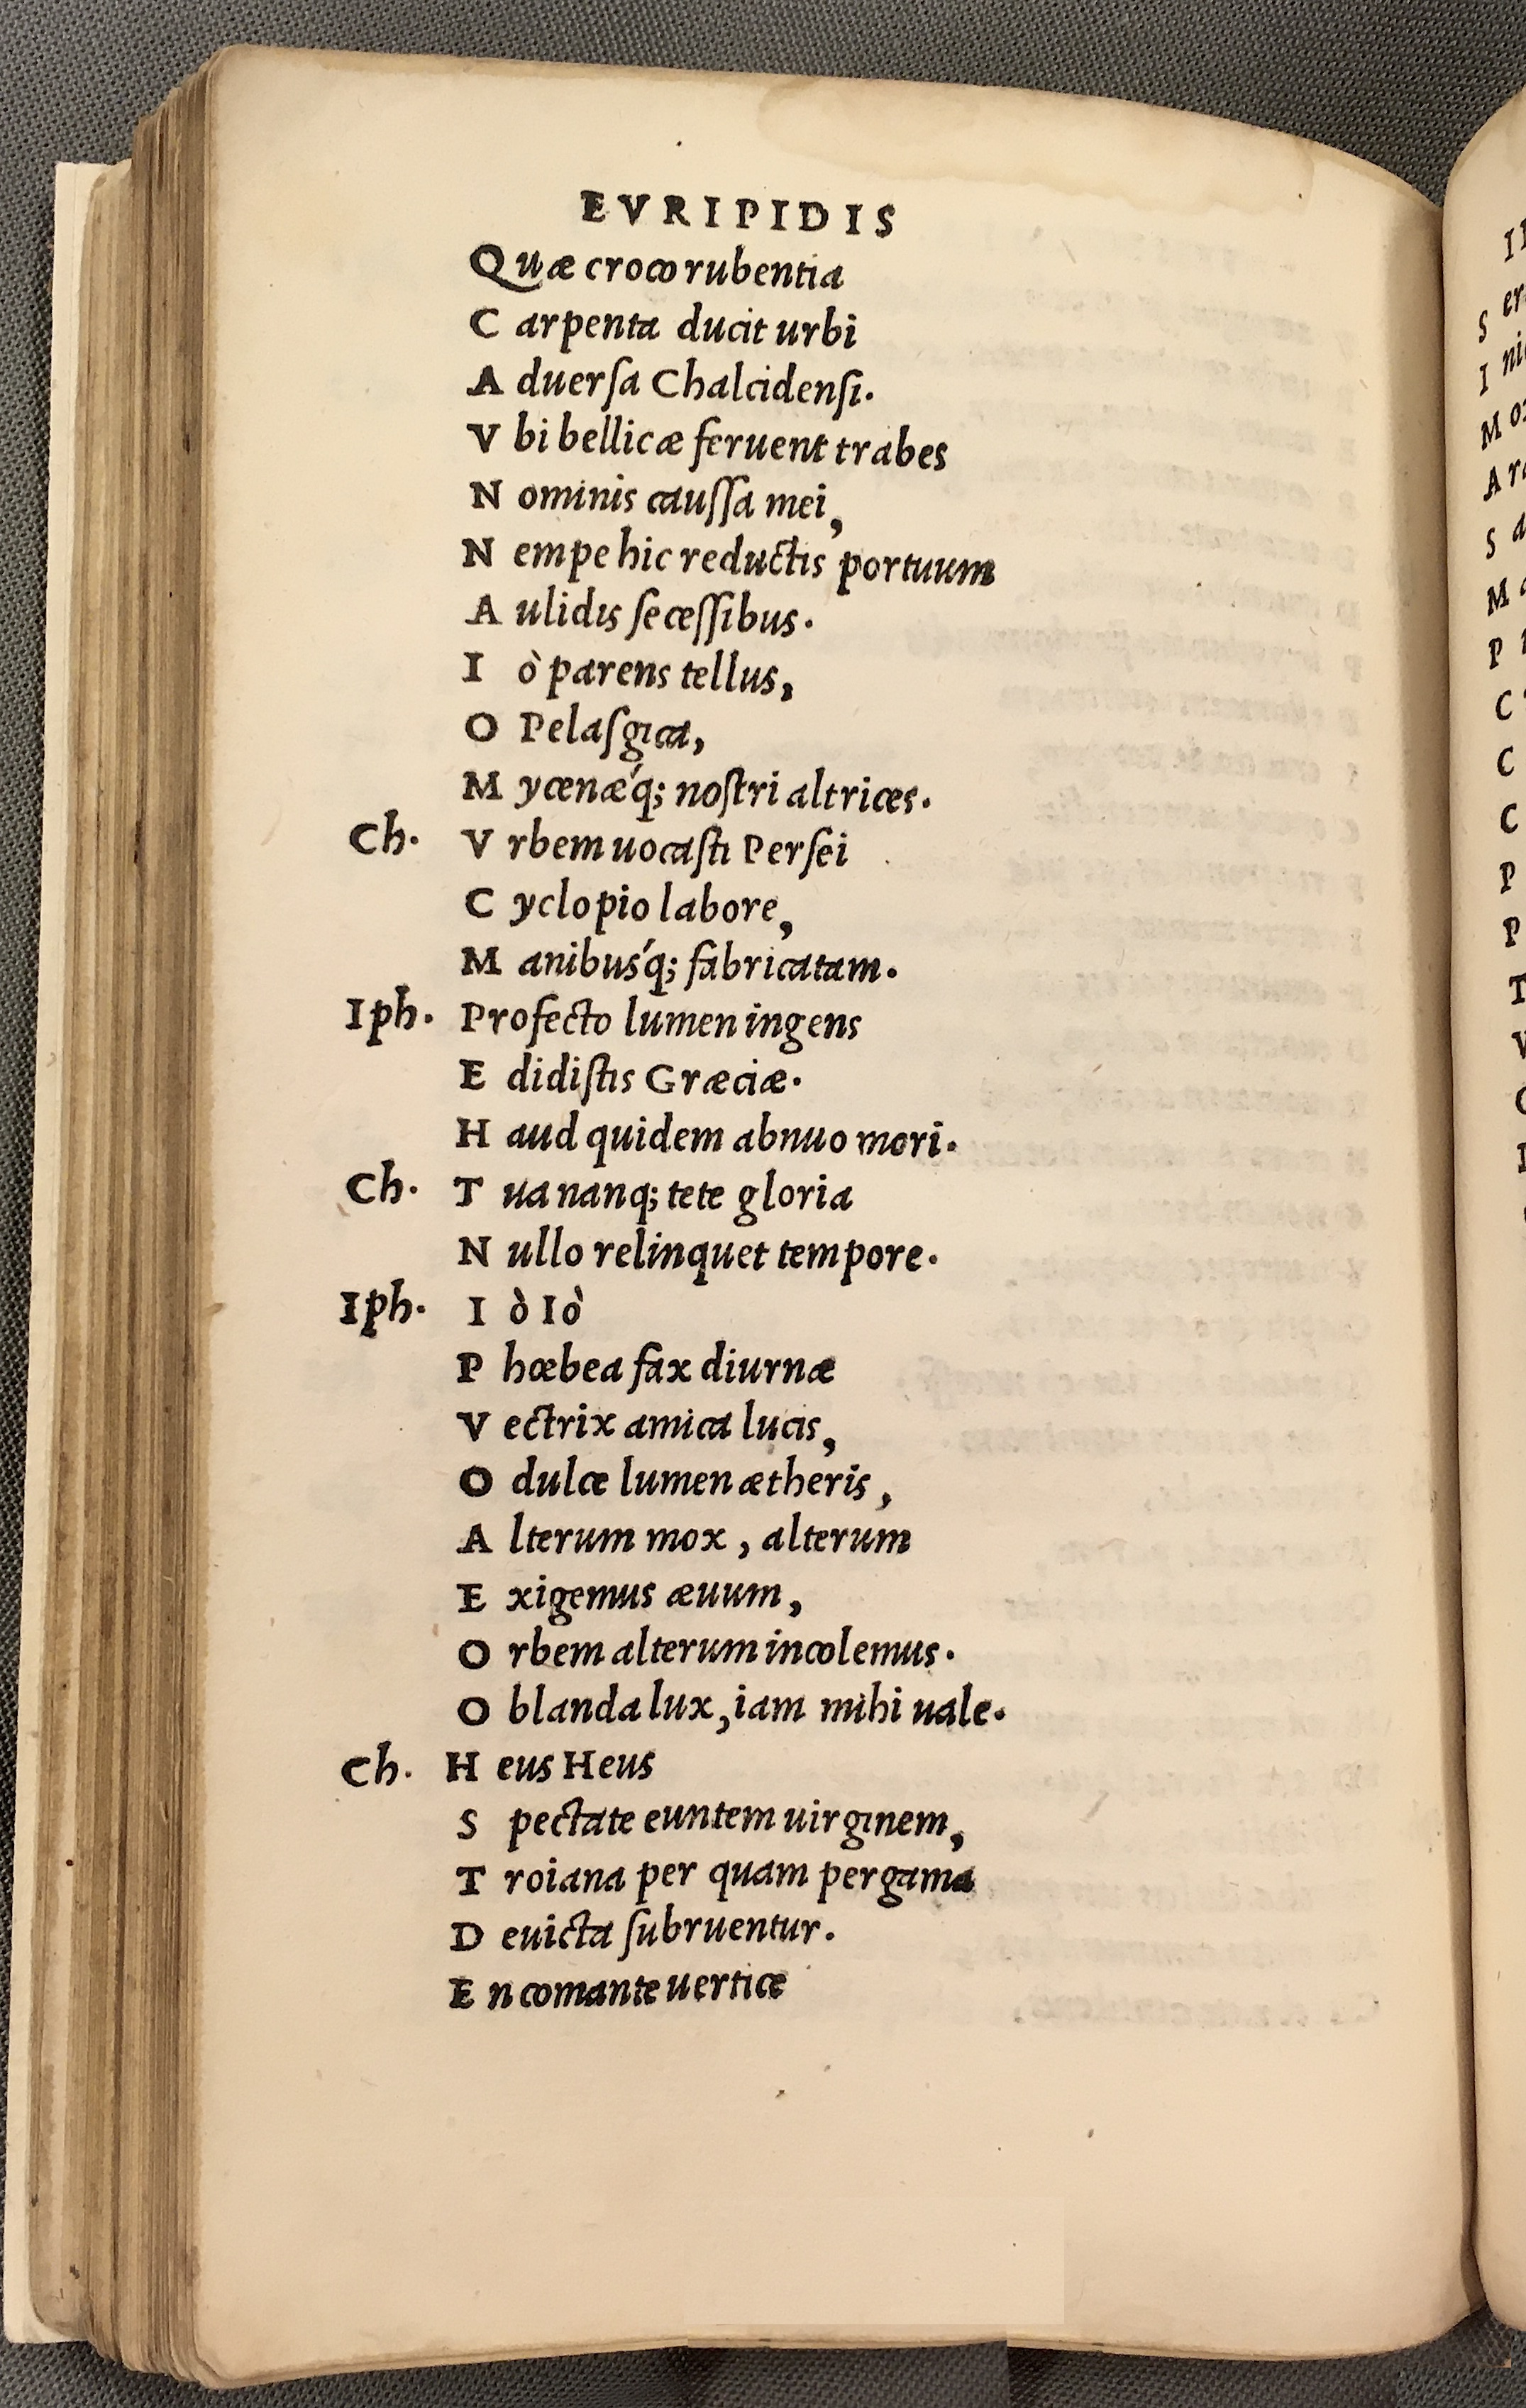 EVRIPIDIS
Quæ croco rubentia
C arpenta ducit urbi
A duerſa Chalcidenſi.
V bi bellicæ feruent trabes
N ominis cauſſa mei,
N empe hic reductis portuum
A ulidis ſeceſſibus.
I ò parens tellus,
O Pelaſgica,
M ycenæ´q; noſtri altrices.
Ch. V rbem uocaſti Perſei
C yclopio labore,
M anibus´q; fabricatam.
Iph. Profecto lumen ingens
E didiſtis Græciæ.
H aud quidem abnuo mori.
Ch. T ua nanq; tete gloria
N ullo relinquet tempore.
Iph. I ò Iò
P hœbea fax diurnæ
V ectrix amica lucis,
O dulce lumen ætheris,
A lterum mox, alterum
E xigemus æuum,
O rbem alterum incolemus.
O blanda lux, iam mihi uale.
Ch. H eus Heus
S pectate euntem uirginem,
T roiana per quam pergama
D euicta ſubruentur.
E n comante uertice